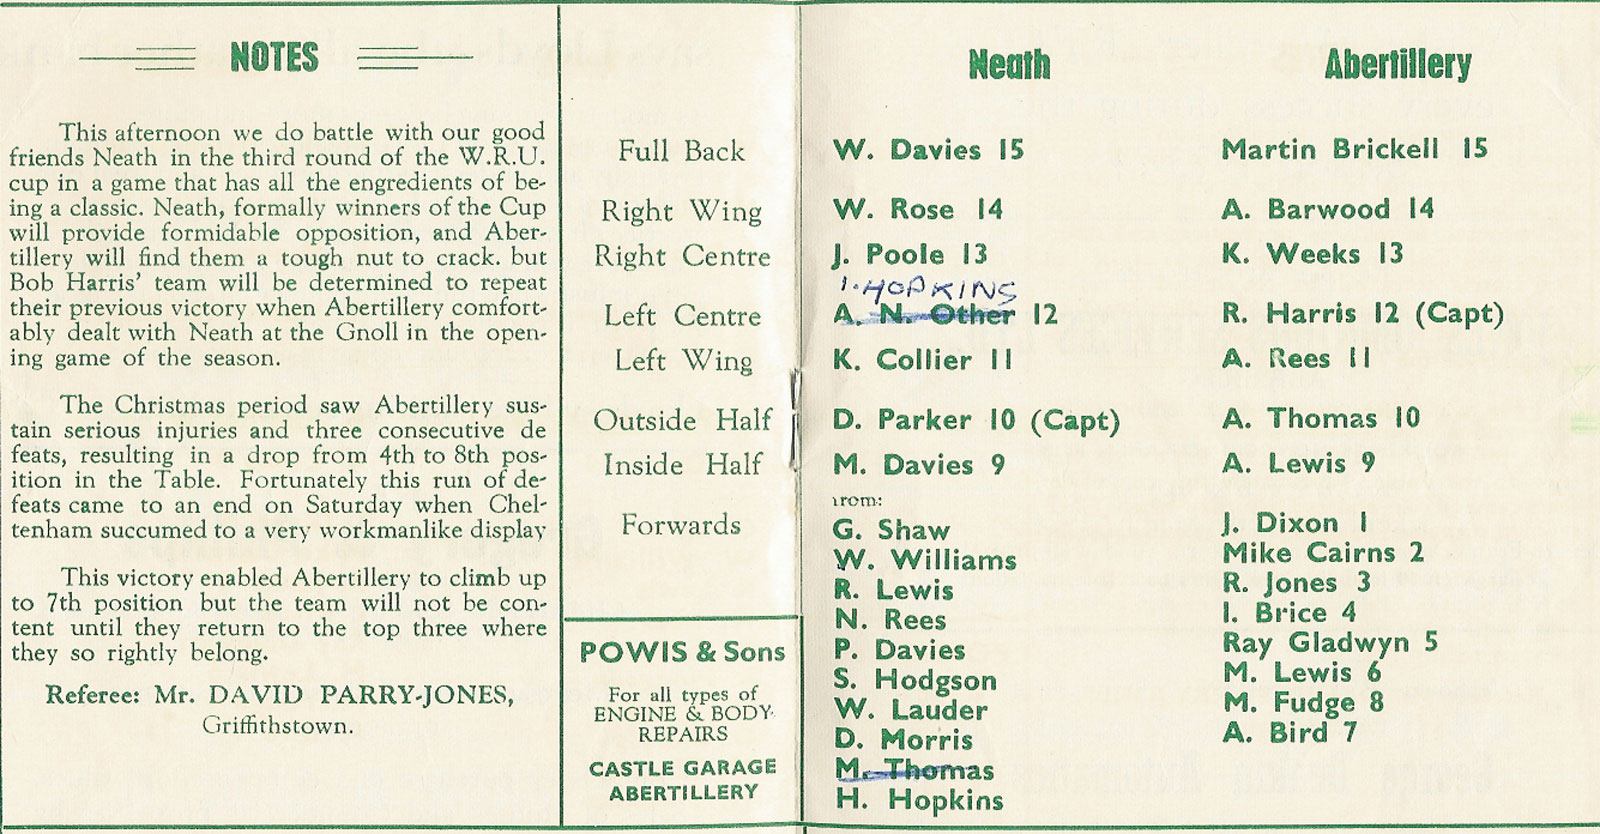 NOTES
This afternoon we do battle with our good
friends Neath in the third round of the W.R.U.
cup in a game that has all the engredients of be-
ing a classic. Neath, formally winners of the Cup
will provide formidable opposition, and Aber-
tillery will find them a tough nut to crack. but
Bob Harris' team will be determined to repeat
their previous victory when Abertillery comfort-
ably dealt with Neath at the Gnoll in the open-
ing game of the season.
The Christmas period saw Abertillery sus-
tain serious injuries and three consecutive de
feats, resulting in a drop from 4th to 8th pos-
ition in the Table. Fortunately this run of de-
feats came to an end on Saturday when Chel-
tenham succumed to a very workmanlike display
This victory enabled Abertillery to climb up
to 7th position but the team will not be con-
tent until they return to the top three where
they so rightly belong.
Referee: Mr. DAVID PARRY-JONES,
Griffithstown.
Full Back
Right Wing
Right Centre
Left Centre
Left Wing
Outside Half
Inside Half
Forwards
POWIS & Sons
For all types of
ENGINE & BODY
REPAIRS
CASTLE GARAGE
ABERTILLERY
Neath
W. Davies 15
W. Rose 14
J. Poole 13
I. HOPKINS
A. N. Other 12
K. Collier 11
D. Parker 10 (Capt)
M. Davies 9
from:
G. Shaw
W. Williams
R. Lewis
N. Rees
P. Davies
S. Hodgson
W. Lauder
D. Morris
M. Thomas
H. Hopkins
Abertillery
Martin Brickell 15
A. Barwood 14
K. Weeks 13
R. Harris 12 (Capt)
A. Rees 11
A. Thomas 10
A. Lewis 9
J. Dixon 1
Mike Cairns 2
R. Jones 3
I. Brice 4
Ray Gladwyn 5
M. Lewis 6
M. Fudge 8
A. Bird 7